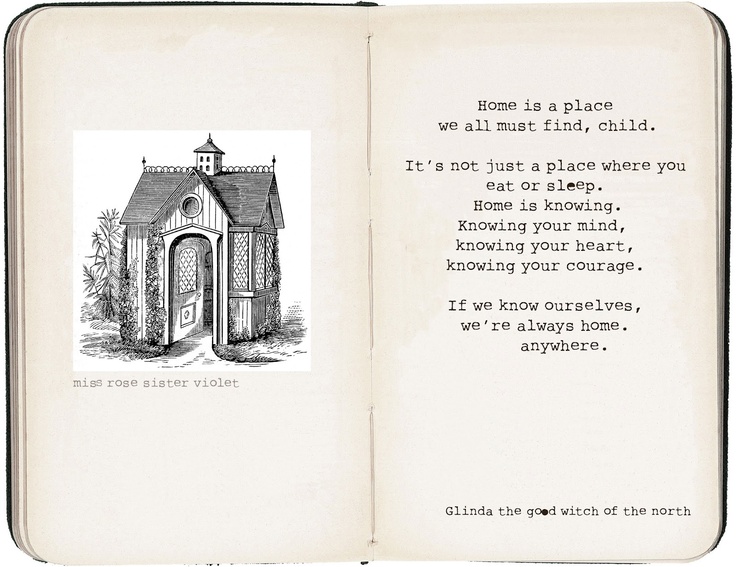 miss rose sister violet
Home is a place
we all must find, child.
It's not just a place where you
eat or sleep.
Home is knowing.
Knowing your mind,
knowing your heart,
knowing your courage.
If we know ourselves,
we're always home.
anywhere.
Glinda the good witch of the north